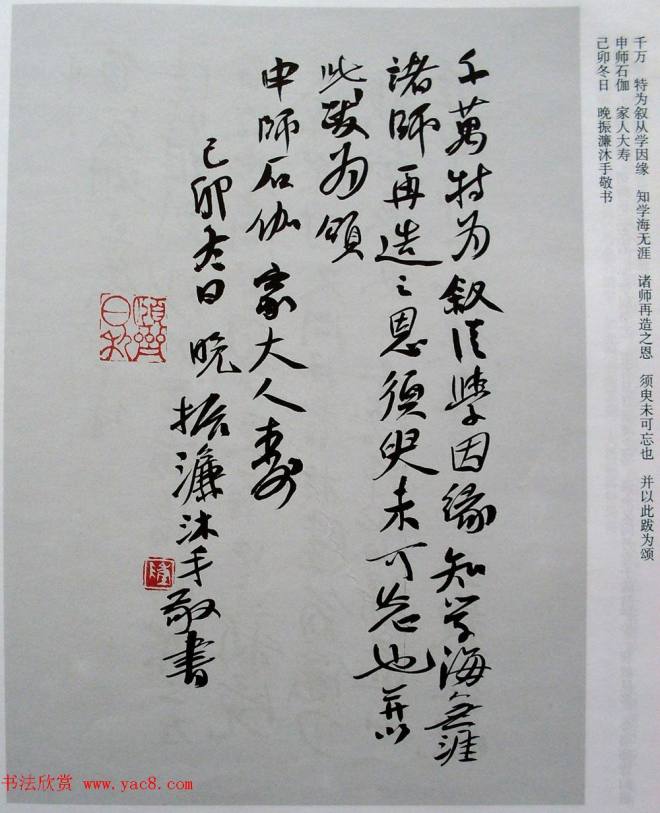 千万　特为叙从学因缘　知学海无涯　诸师再造之恩　须臾未可忘也　并以此跋为颂
申师石伽　家人大寿
己卯冬日　晚振濂沐手敬书
千萬特为叙従學因缘知学海無涯
諸師再造之恩须臾未可忘也并以
此跋为頌
申師石伽家大人寿
己卯冬日晚振濂沐手敬書
书法欣赏 www.yac8.com